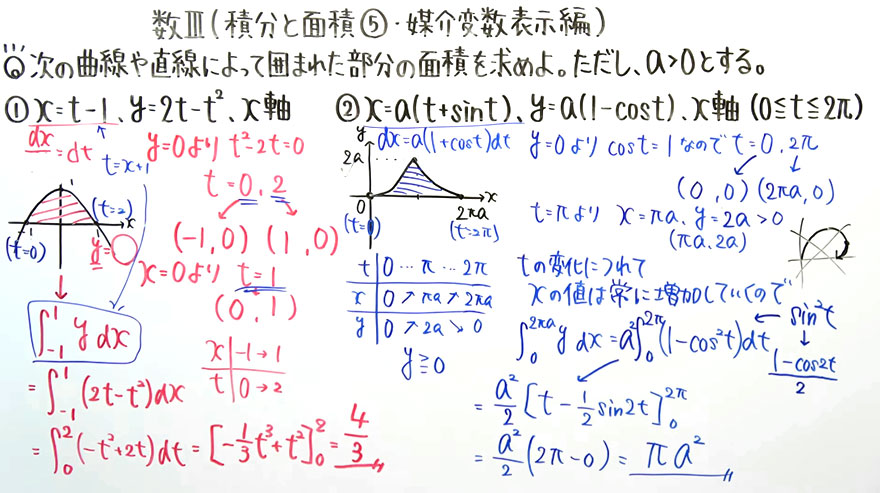 数Ⅲ(積分と面積⑤・媒介変数表示編)
Q 次の曲線や直線によって囲まれた部分の面積を求めよ。ただし、a>0とする。
① x=t-1、y=2t-t²、x軸
dx/=dt
t=x+1
y=0より t²-2t=0
t=0, 2
(-1,0) (1,0)
x=0より t=1
(0,1)
1
-1
1
x
(t=0)
(t=2)
y=0
∫₋₁¹ y dx
x | -1→1
t | 0→2
=∫₋₁¹(2t-t²)dx
=∫₀²(-t²+2t)dt=[-1/3t³+t²]₀²=4/3
② x=a(t+sint)、y=a(1-cost)、x軸 (0≦t≦2π)
dx=a(1+cost)dt
y
2a
0
x
2πa
(t=0)
(t=2π)
y=0より cost=1なので t=0, 2π
(0,0) (2πa,0)
t=πより x=πa、y=2a>0
(πa,2a)
t | 0…π…2π
x | 0↗πa↗2πa
y | 0↗2a↘0
y≧0
tの変化につれて
xの値は常に増加していくので
∫₀²πᵃ y dx=a²∫₀²π(1-cos²t)dt ← sin²t
↓
1-cos2t/2
=a²/2[t-1/2sin2t]₀²π
=a²/2(2π-0)=πa²